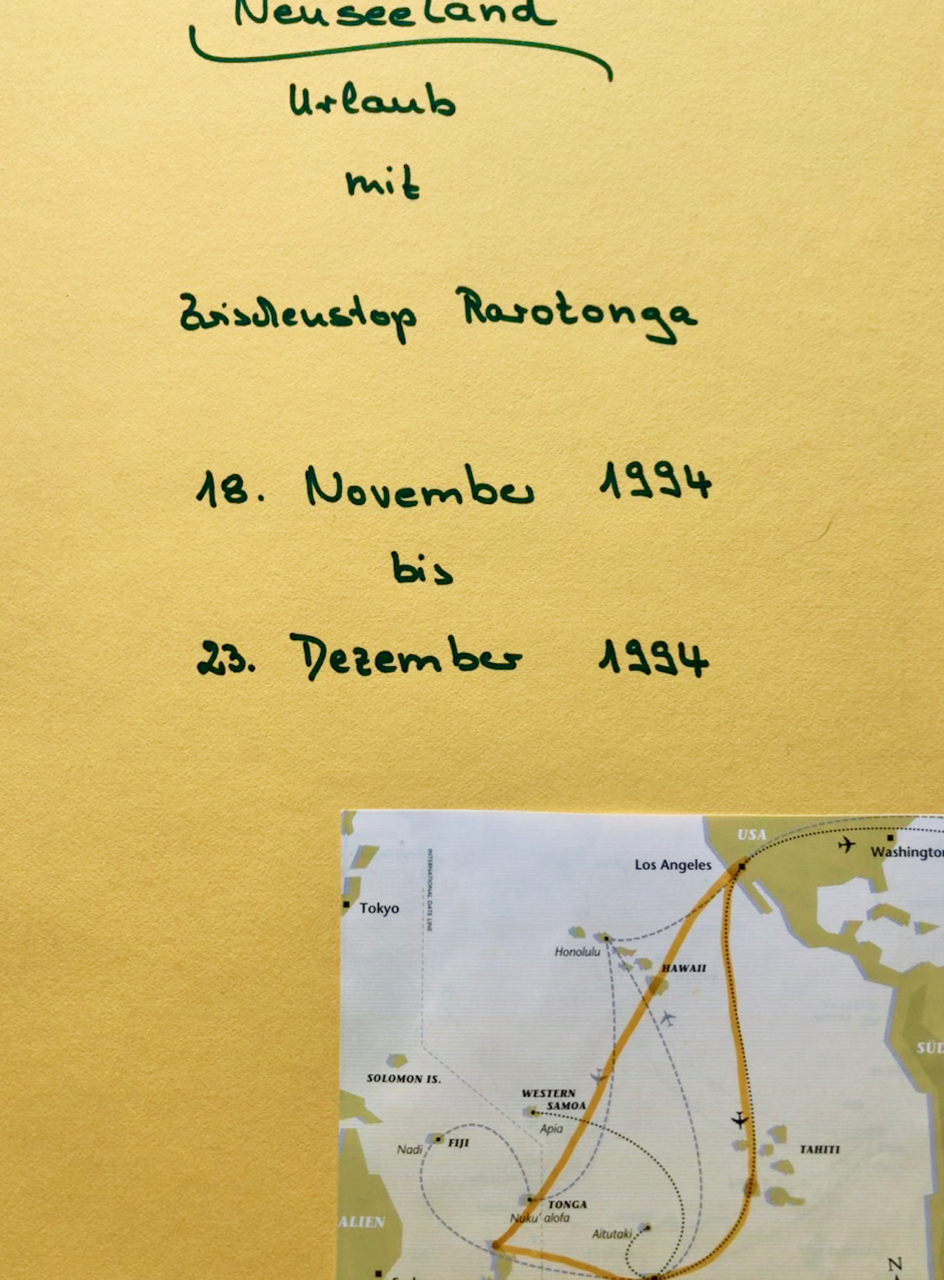 Neuseeland
Urlaub
mit
Zwischenstop Rarotonga
18. November 1994
bis
23. Dezember 1994
USA
Washington
Los Angeles
INTERNATIONAL DATE LINE
Tokyo
Honolulu
HAWAII
SÜD
SOLOMON IS.
WESTERN
SAMOA
Apia
Nadi
FIJI
TAHITI
TONGA
Nuku'alofa
ALIEN
Aitutaki
N